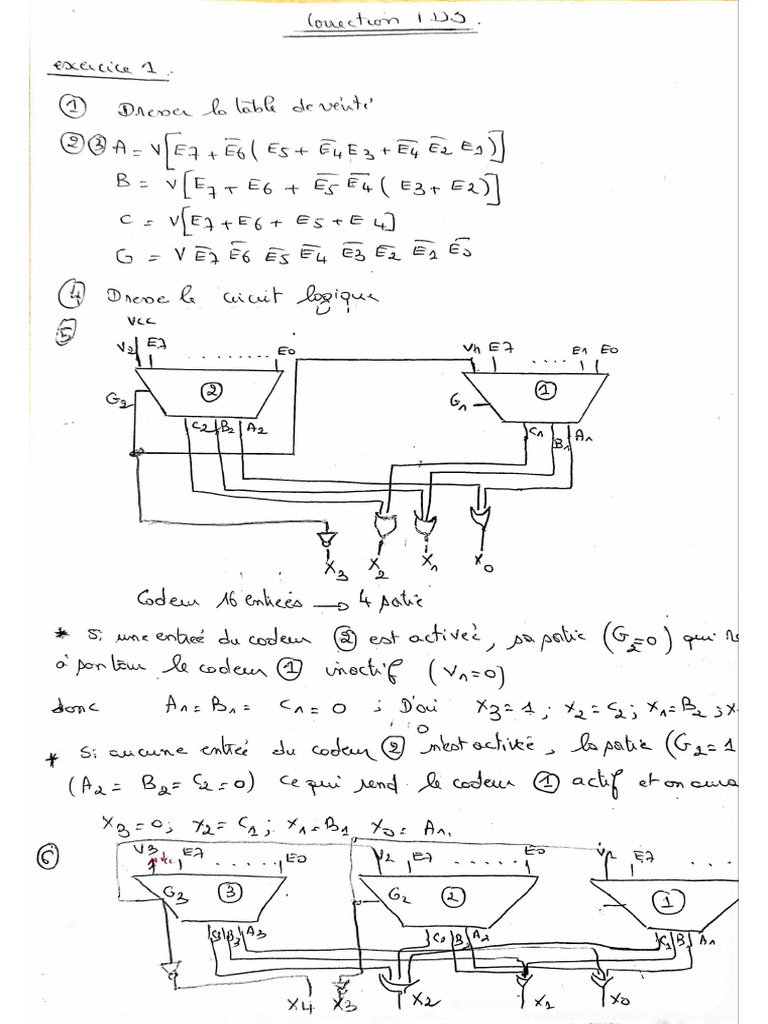 Correction 1 DS.
exercice 1.
① Dresser la table de vérité
②③ A = V[E7 + E̅6(E5 + E̅4E3 + E̅4 E̅2 E1)]
B = V[E7 + E6 + E̅5 E̅4(E3 + E2)]
C = V[E7 + E6 + E5 + E4]
G = V E̅7 E̅6 E̅5 E̅4 E̅3 E̅2 E̅1 E̅0
④ Dresse le circuit logique
⑤
Vcc
V2 E7 ........ E0 V1 E7 .... E1 E0
G2 ② G1 ①
C2 B2 A2 C1 B1 A1
X3 X2 X1 X0
Codeur 16 entrées → 4 sortie
* Si une entrée du codeur ② est activée, sa sortie (G2=0) qui
à son tour le codeur ① inactif (V1=0)
donc A1 = B1 = C1 = 0 ; D'où X3=1 ; X2=C2 ; X1=B2 ; X
* Si aucune entrée du codeur ② n'est activée, la sortie (G2=1
(A2 = B2 = C2 = 0) ce qui rend le codeur ① actif et on aura
X3=0 ; X2=C1 ; X1=B1 X0=A1.
⑥ V3 E7 ...... E0 V2 E7 ...... E0 E7 ....
G3 ③ G2 ② ①
C3 B3 A3 C2 B2 A2 C1 B1 A1
X4 X3 X2 X1 X0